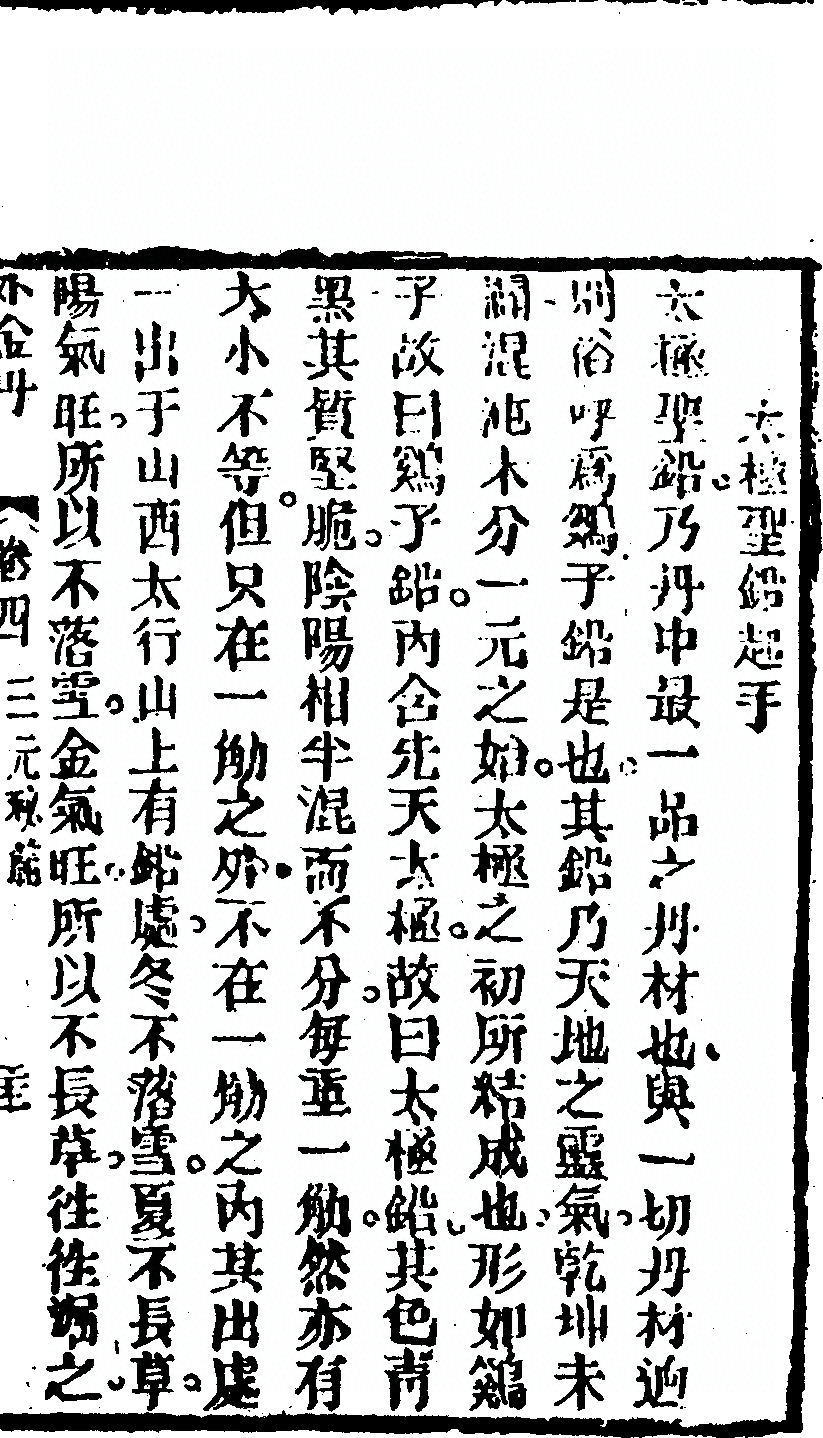 太極聖鉛起手
太極聖鉛乃丹中最一品之丹材也與一切丹材逈
別俗呼爲鷄子鉛是也其鉛乃天地之靈氣乾坤未
闢混沌未分一元之始太極之初所結成也形如鷄
子故曰鷄子鉛內含先天太極故曰太極鉛其色靑
黑其質堅脆陰陽相半混而不分每重一觔然亦有
大小不等但只在一觔之外不在一觔之內其出處
一出于山西太行山上有鉛處冬不落雪夏不長草
陽氣旺所以不落雪金氣旺所以不長草徃徃掘之
外金丹 卷四 三元秘範